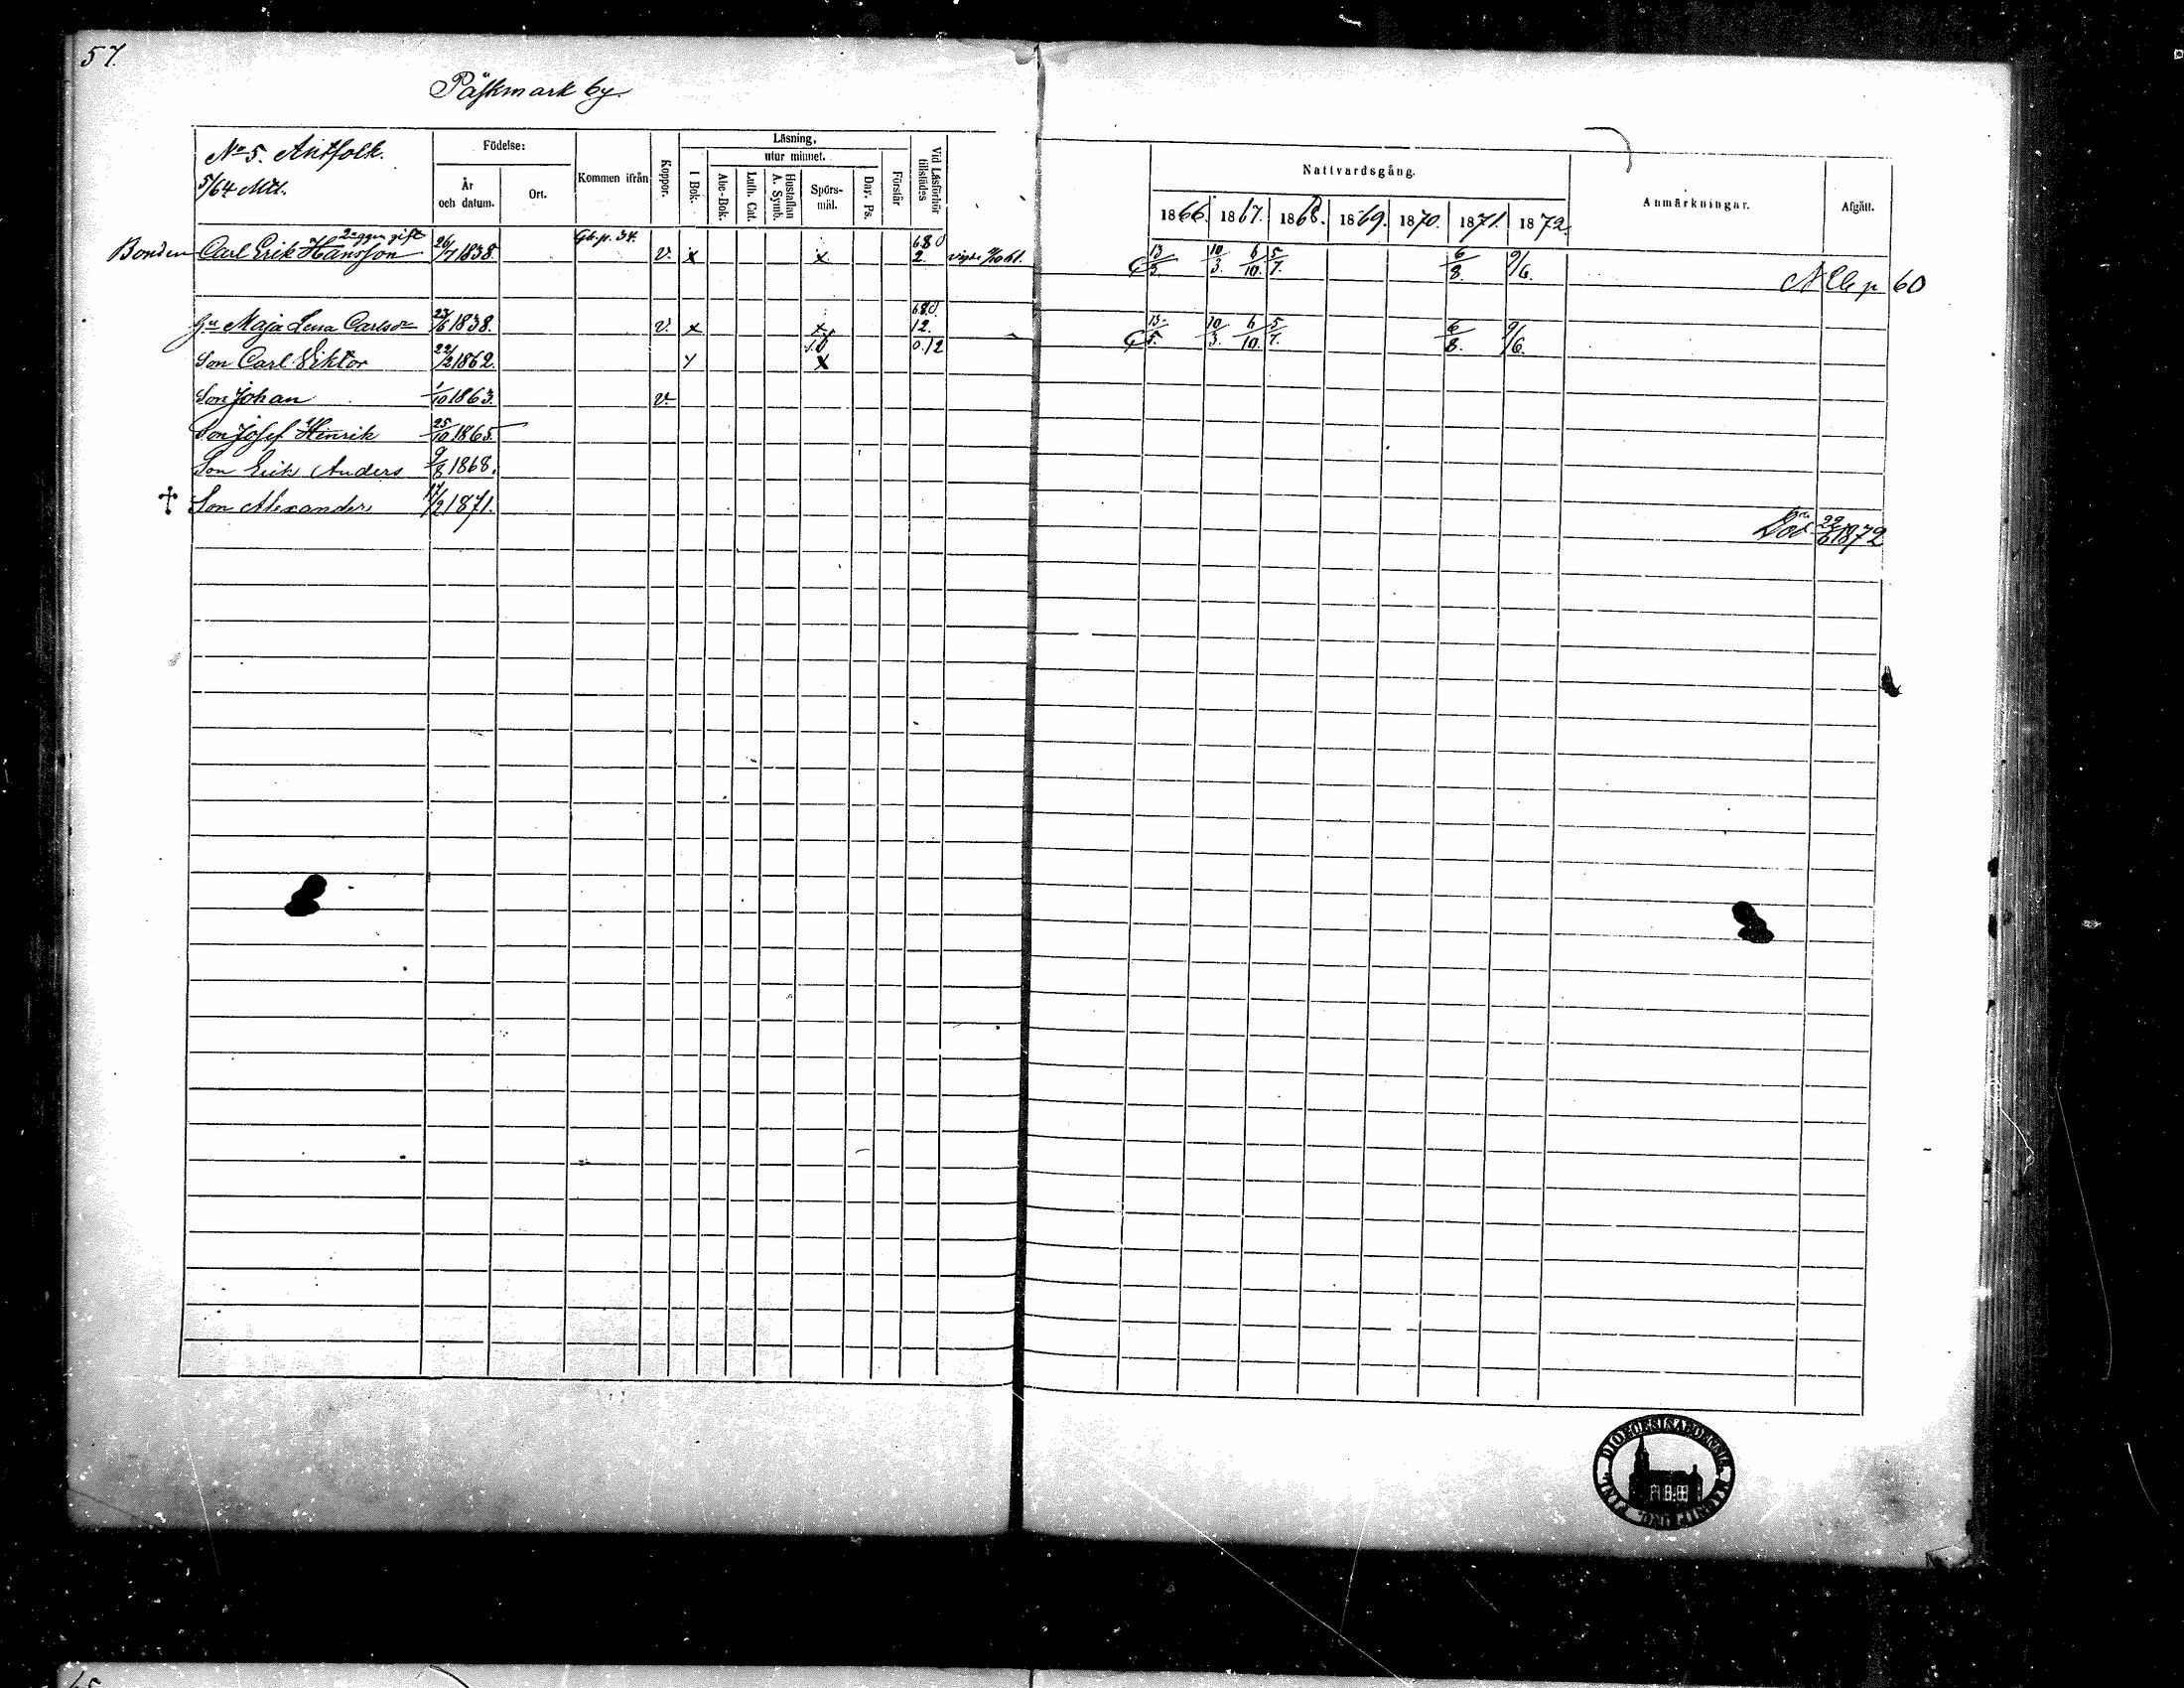 57.
Påskmark by
No 5. Antfolk.
5/64 Mtl.
Födelse:
År och datum.
Ort.
Kommen ifrån
Koppor.
Läsning,
I Bok.
utur minnet.
Abc-Bok.
Luth. Cat.
Hustaflan A. Symb.
Spörs-mål.
Dav. Ps.
Förstår
Vid Läsförhör tillstädes
Nattvardsgång.
1866. 1867. 1868. 1869. 1870. 1871. 1872.
Anmärkningar.
Afgått.
2a ggn gift Gb. p. 34. 68
Bonden Carl Erik Hansson 26/7 1838. v. x x 2. 13/5. 10/3. 6/10. 5/7. 6/8. 9/6.
N Cb p 60
Hu Maja Lena Carlsdr 23/6 1838. v. x x 12. 13/5. 10/3. 6/10. 5/7. 6/8. 9/6.
Son Carl Viktor 22/2 1862. x 0.12
Son Johan 1/10 1863. v.
Son Josef Henrik 25/10 1865.
Son Erik Anders 9/8 1868.
† Son Alexander 17/2 1871.
Död 22/6 1872
DIOECESIS ABOENSIS